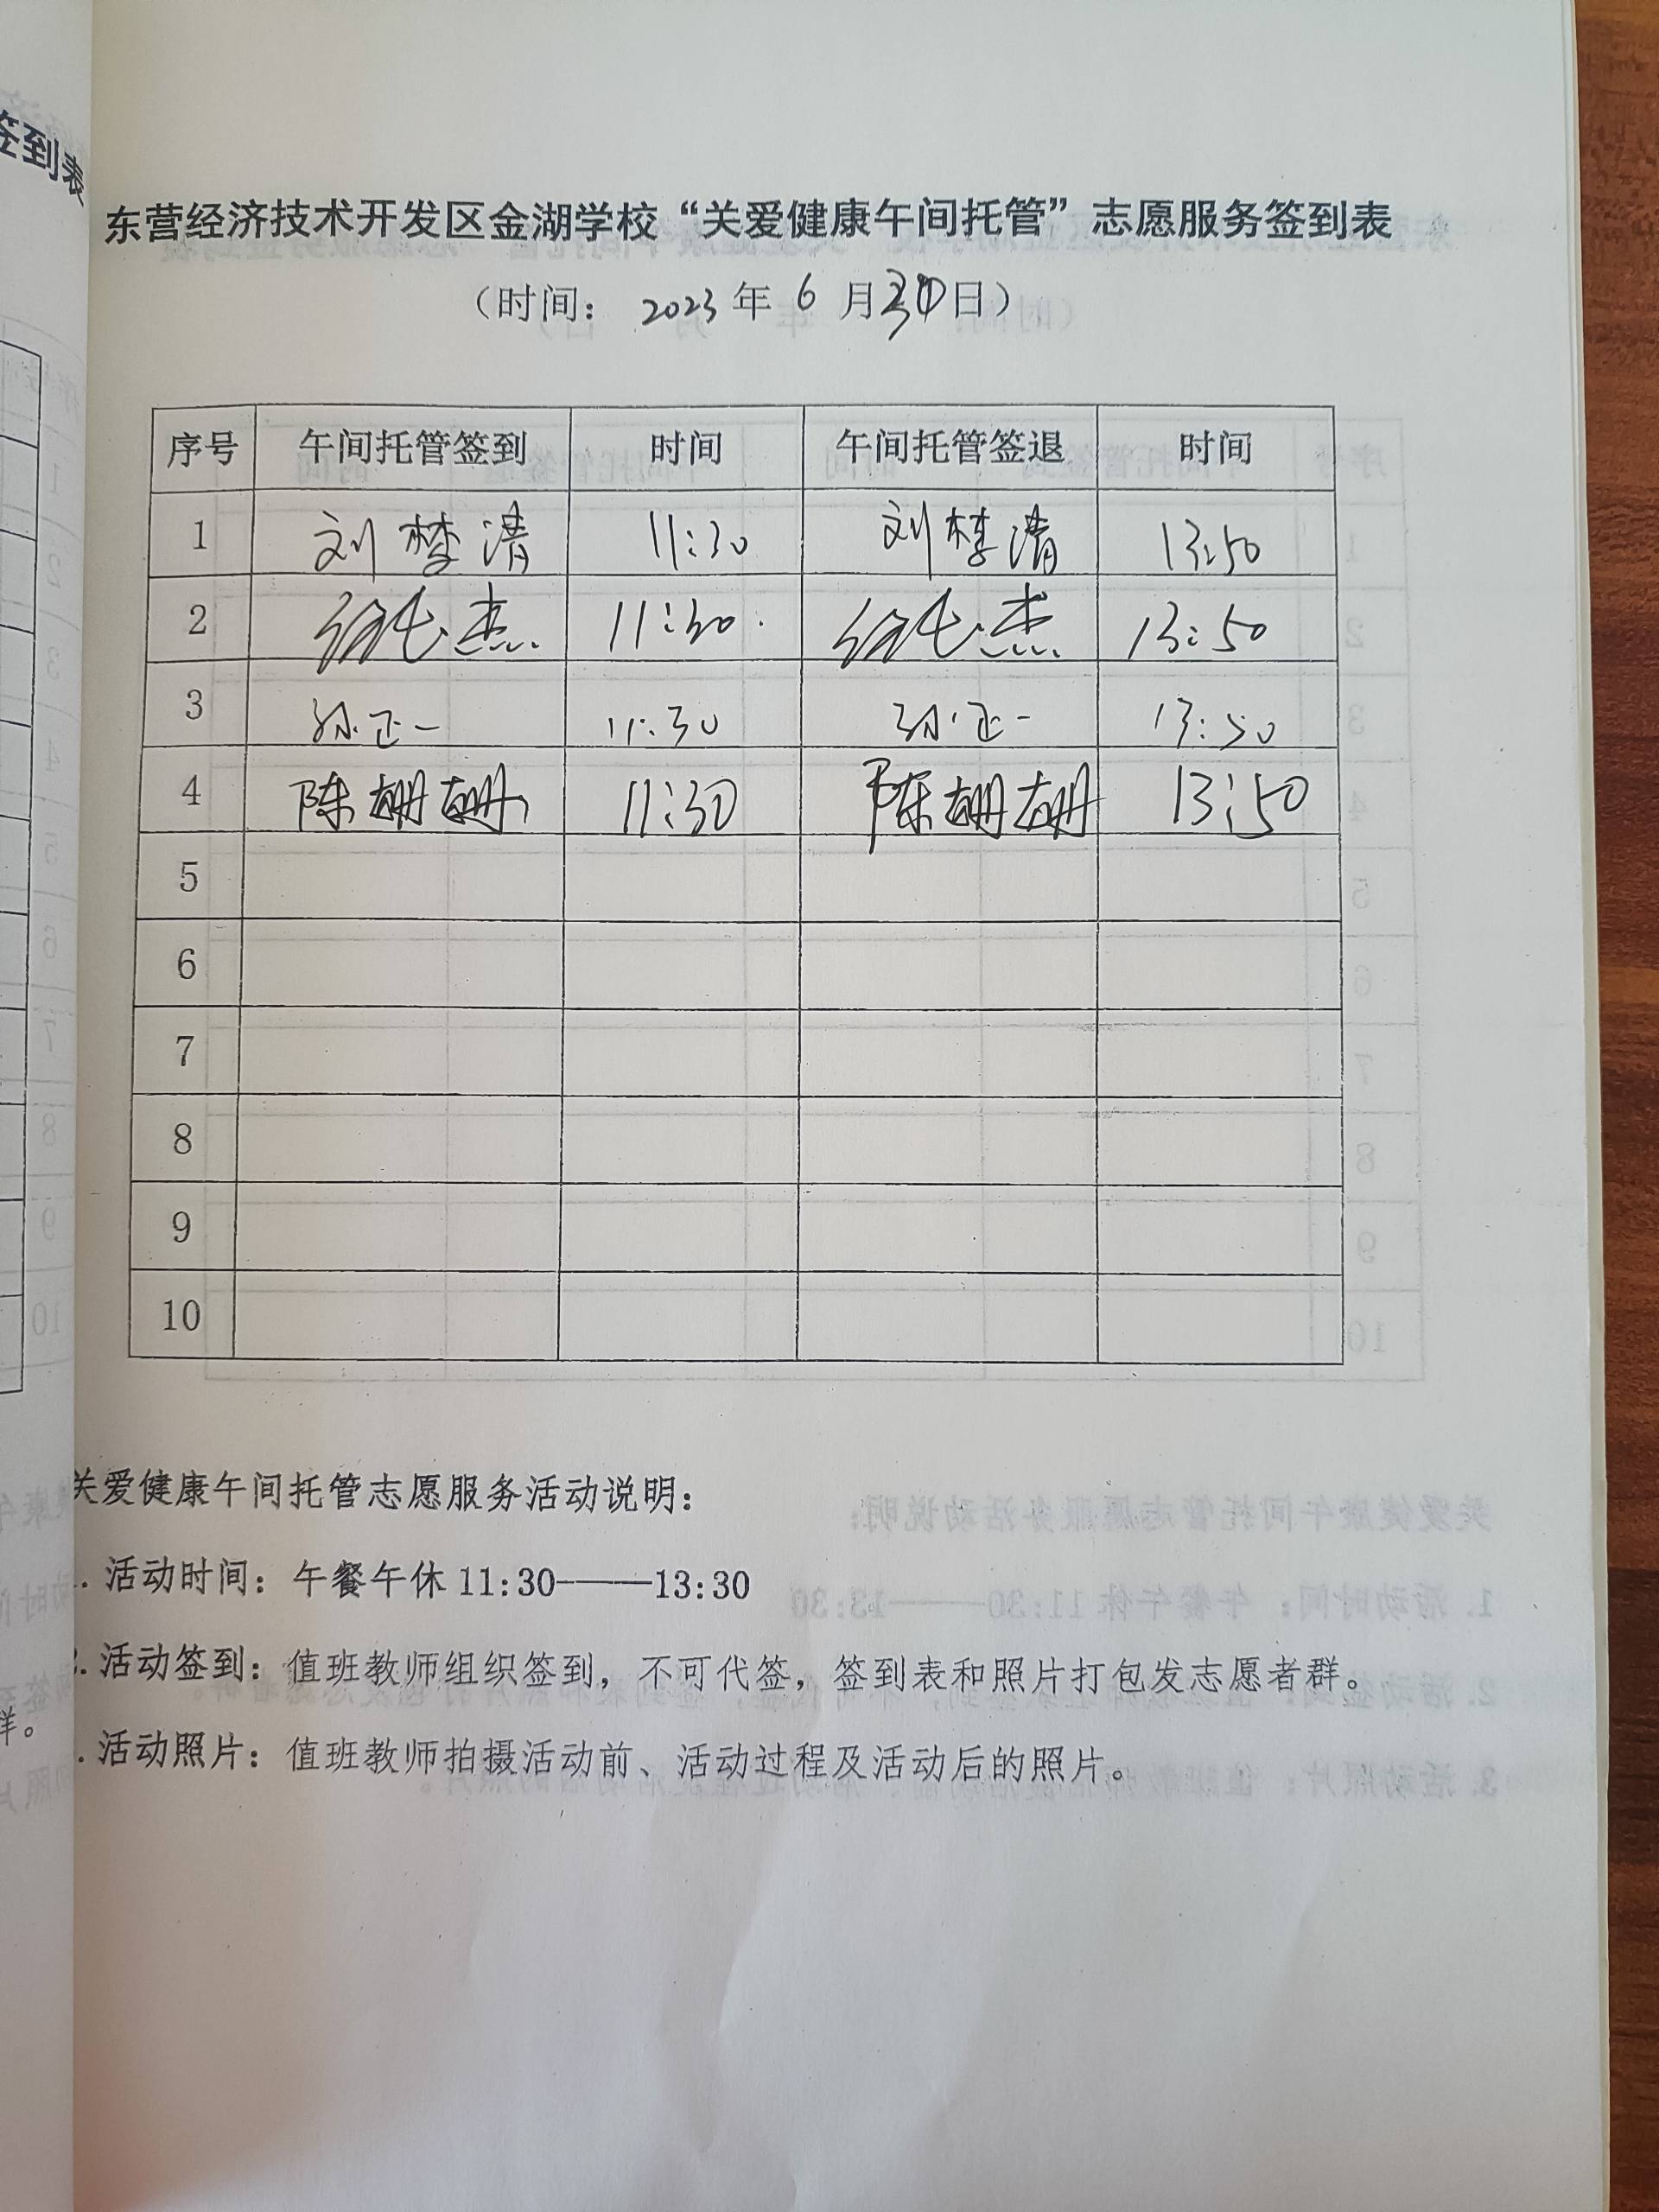 签到表
东营经济技术开发区金湖学校“关爱健康午间托管”志愿服务签到表
（时间： 2023 年 6 月 30 日）
序号 午间托管签到 时间 午间托管签退 时间
1 刘梦清 11:30 刘梦清 13:50
2 杰 11:30 杰 13:50
3 孙正一 11:30 孙正一 13:50
4 陈姗姗 11:30 陈姗姗 13:50
5
6
7
8
9
10
关爱健康午间托管志愿服务活动说明：
. 活动时间：午餐午休 11:30———13:30
. 活动签到：值班教师组织签到，不可代签，签到表和照片打包发志愿者群。
群。
. 活动照片：值班教师拍摄活动前、活动过程及活动后的照片。